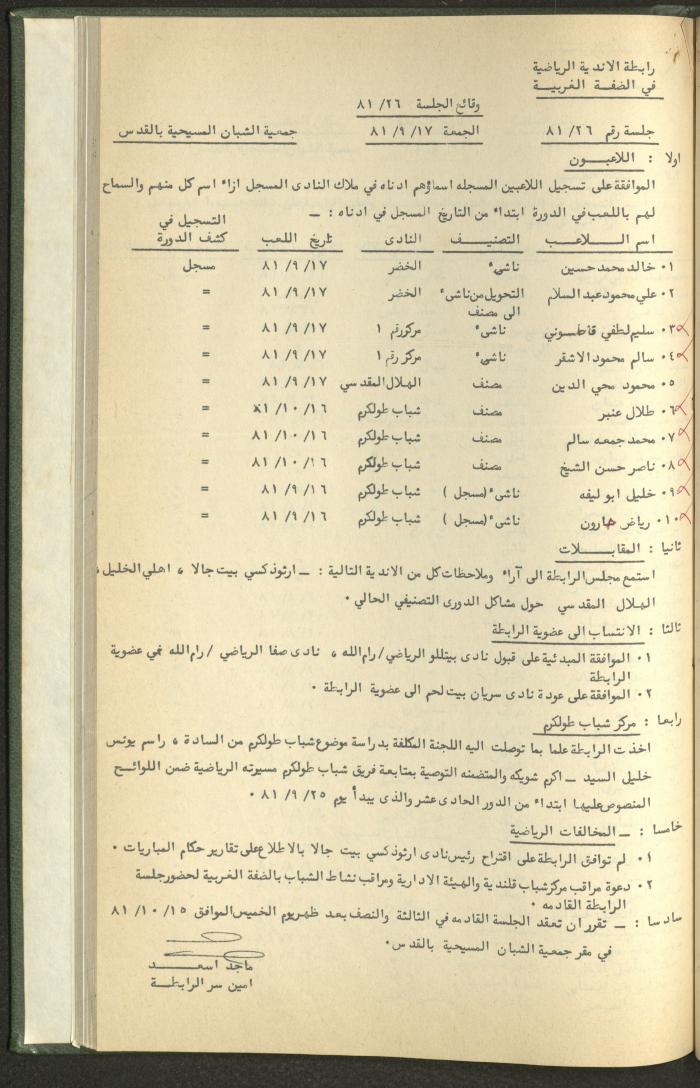 رابطة الاندية الرياضية
في الضفة الغربية
وقائع الجلسة ٨١/٢٦
جلسة رقم ٨١/٢٦ الجمعة ٨١/٩/١٧ جمعية الشبان المسيحية بالقدس
اولا : اللاعبون
الموافقة على تسجيل اللاعبين المسجله اسماؤهم ادناه في ملاك النادى المسجل ازاء اسم كل منهم والسماح
لهم باللعب في الدورة ابتداء من التاريخ المسجل في ادناه : ـ
اسم اللاعب التصنيف النادى تاريخ اللعب التسجيل في كشف الدورة
٠١ خالد محمد حسين ناشيء الخضر ٨١/٩/١٧ مسجل
٠٢ علي محمود عبد السلام التحويل من ناشيء الى مصنف الخضر ٨١/٩/١٧ =
٠٣ سليم لطفي قاطوني ناشيء مركز رقم ١ ٨١/٩/١٧ =
٠٤ سالم محمود الاشقر ناشيء مركز رقم ١ ٨١/٩/١٧ =
٠٥ محمود محي الدين مصنف الهلال المقدسي ٨١/٩/١٧ =
٠٦ طلال عنبر مصنف شباب طولكرم ٨١/١٠/١٦ =
٠٧ محمد جمعه سالم مصنف شباب طولكرم ٨١/١٠/١٦ =
٠٨ ناصر حسن الشيخ مصنف شباب طولكرم ٨١/١٠/١٦ =
٠٩ خليل ابو ليفه ناشيء (مسجل ) شباب طولكرم ٨١/٩/١٦ =
٠١٠ رياض هارون ناشيء (مسجل ) شباب طولكرم ٨١/٩/١٦ =
ثانيا : المقابلات
استمع مجلس الرابطة الى آراء وملاحظات كل من الاندية التالية : ـ ارثوذكسي بيت جالا ، اهلي الخليل ،
الهلال المقدسي حول مشاكل الدورى التصنيفي الحالي ٠
ثالثا : الانتساب الى عضوية الرابطة
٠١ الموافقة المبدئية على قبول نادى بيتللو الرياضي/رام الله ، نادى صفا الرياضي /رام الله في عضوية
الرابطة
٠٢ الموافقة على عودة نادى سريان بيت لحم الى عضوية الرابطة ٠
رابعا : مركز شباب طولكرم
اخذت الرابطة علما بما توصلت اليه اللجنة المكلفة بدراسة موضوع شباب طولكرم من السادة ، راسم يونس
خليل السيد ـ اكرم شويكه والمتضمنه التوصية بمتابعة فريق شباب طولكرم مسيرته الرياضية ضمن اللوائح
المنصوص عليها ابتداء من الدور الحادى عشر والذى يبدأ يوم ٨١/٩/٢٥ ٠
خامسا : ـ المخالفات الرياضية
٠١ لم توافق الرابطة على اقتراح رئيس نادى ارثوذكسي بيت جالا بالاطلاع على تقارير حكام المباريات ٠
٠٢ دعوة مراقب مركز شباب قلندية والهيئة الادارية ومراقب نشاط الشباب بالضفة الغربية لحضور جلسة
الرابطة القادمه ٠
سادسا : ـ تقرر ان تعقد الجلسة القادمه في الثالثة والنصف بعد ظهر يوم الخميس الموافق ٨١/١٠/١٥
في مقر جمعية الشبان المسيحية بالقدس ٠
ماجد اسعد
امين سر الرابطة